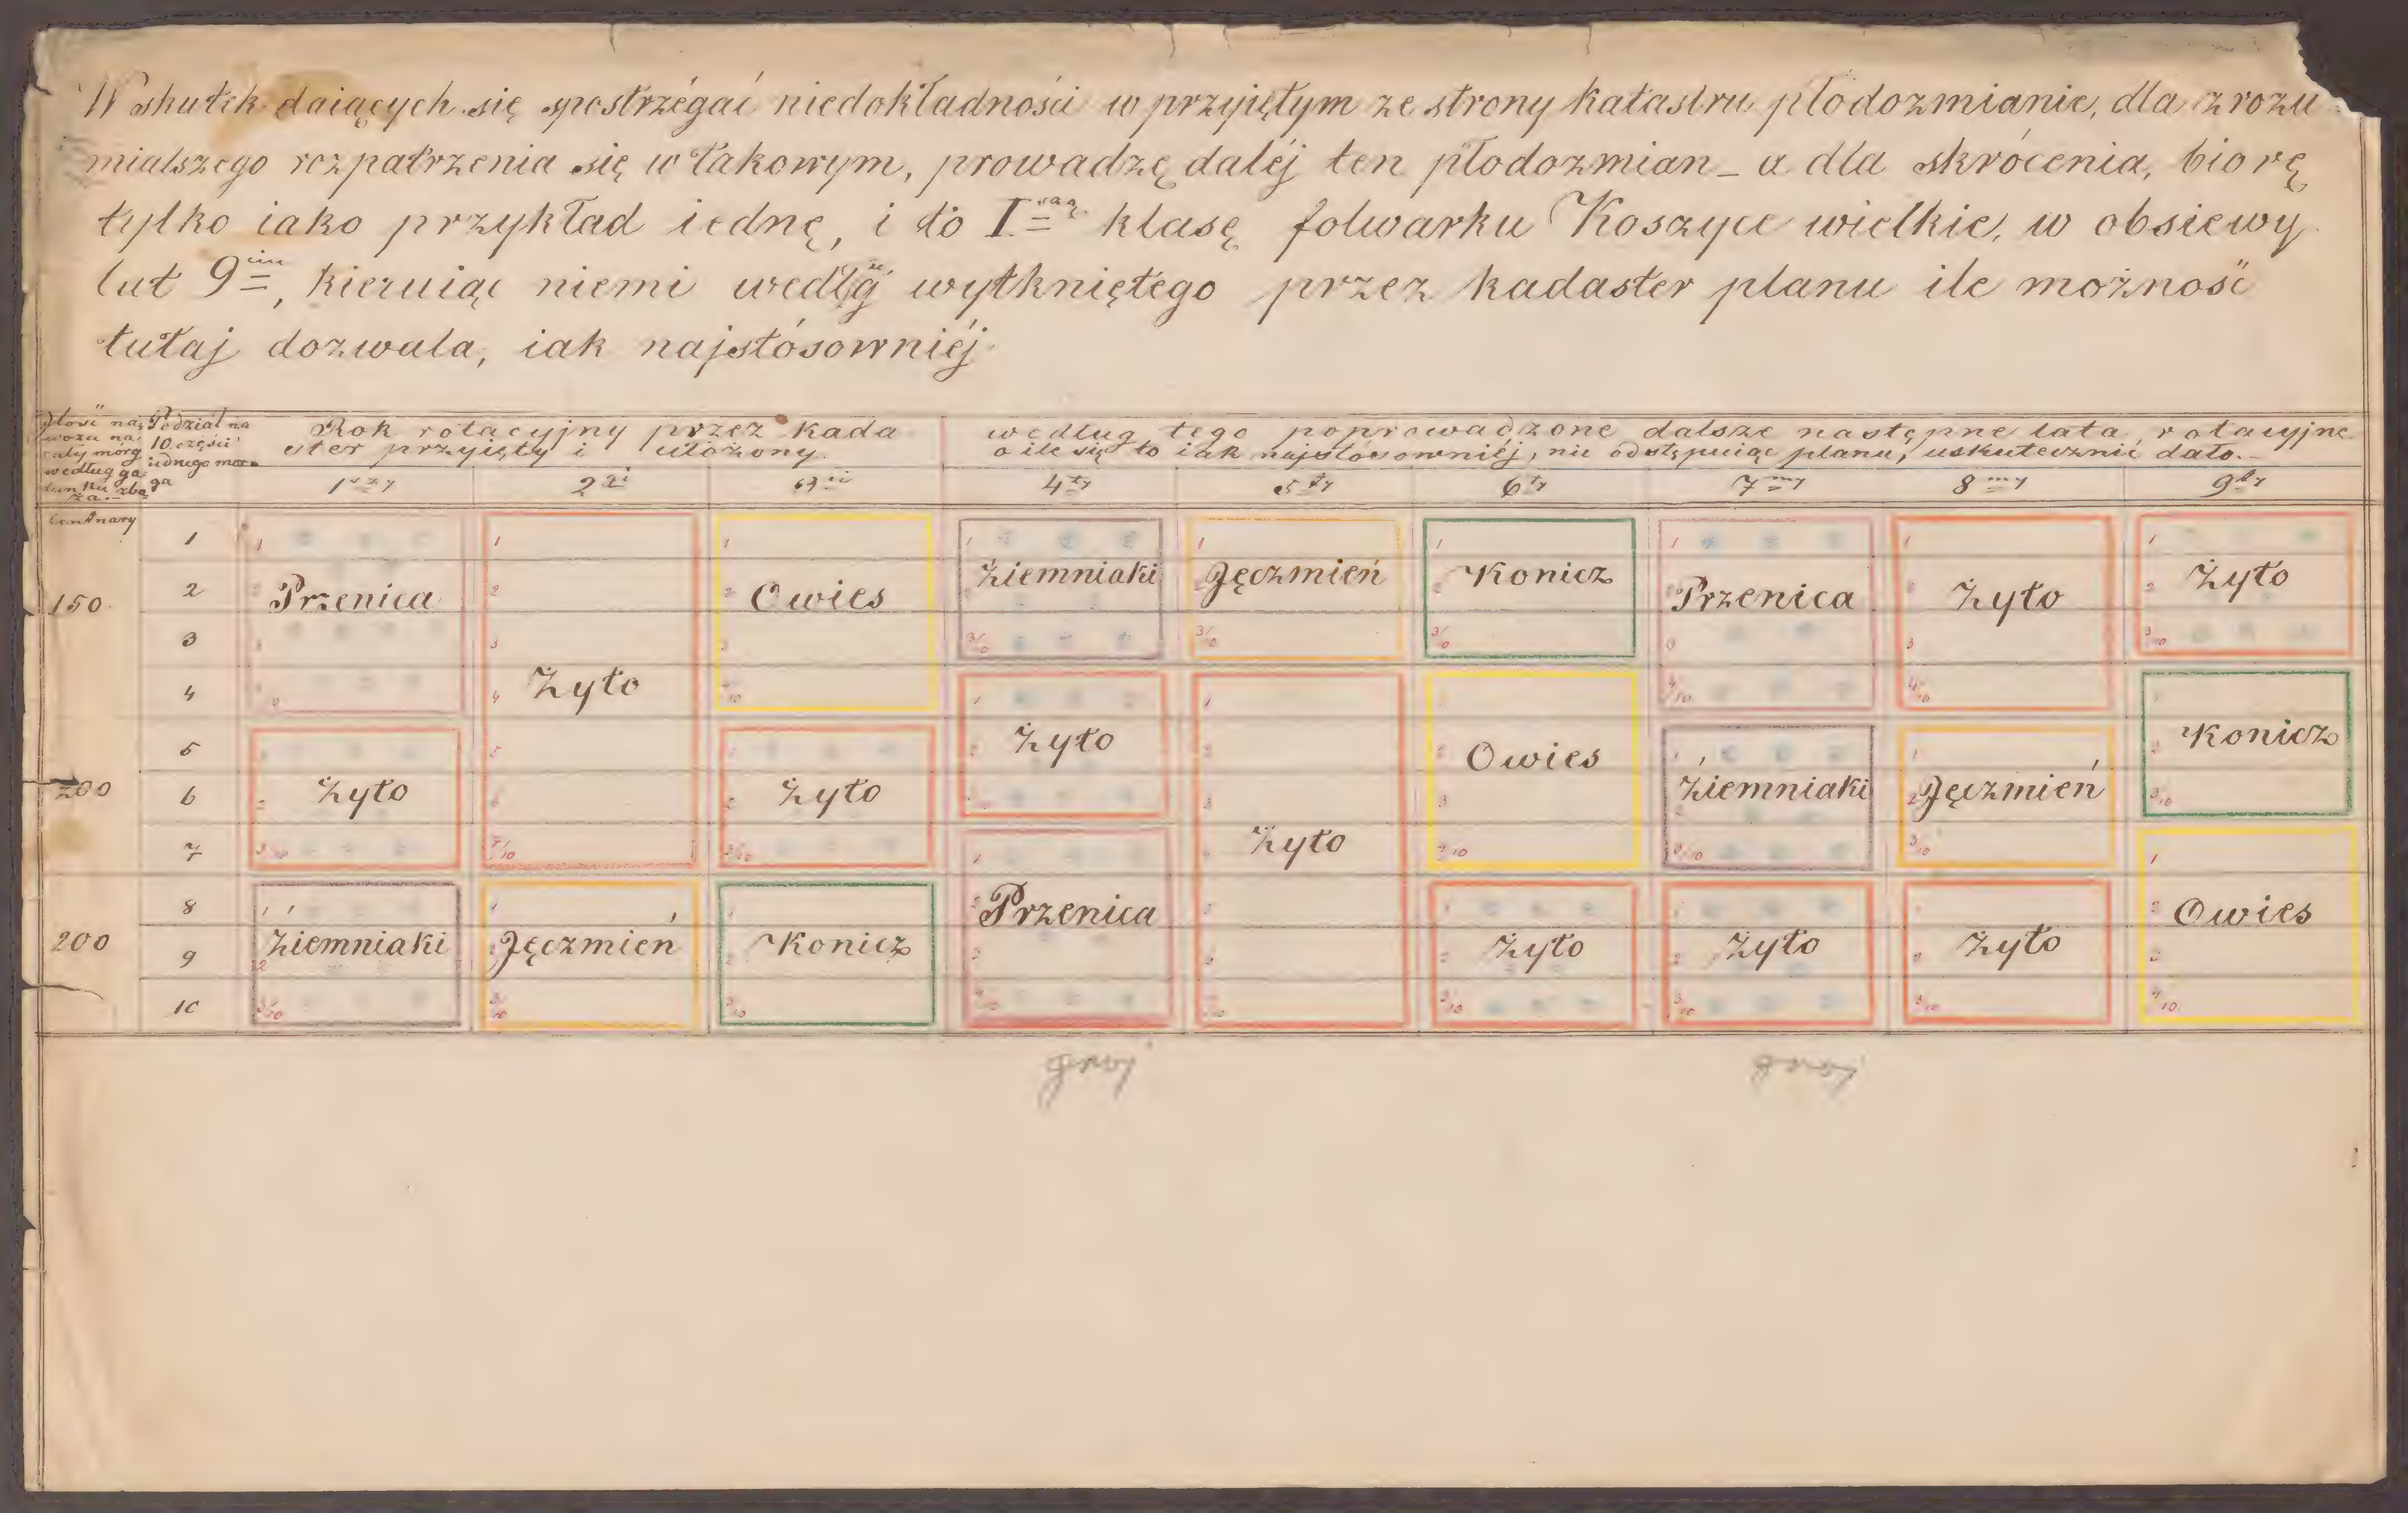 W skutek daiących się spostrzégać niedokładności w przyiętym ze strony katastru płodozmianie, dla zrozu
mialszego rozpatrzenia się w takowym, prowadzę daléj ten płodozmian – a dla skrócenia, biorę
tylko iako przykład iednę, i to I szą klasę folwarku Koszyce wielkie, w obsiewy
lat 9 ciu, kieruiąc niemi wedlg wytkniętego przez kadaster planu ile możność
tutaj dozwala, iak najstósowniéj
Ilość na
wozu na
cały mórg
według ga
tunku zbo
ża.
Podział na
10 części
iednego mor
ga
Rok rotacyjny przez kada
ster przyięty i ułożony.
według tego poprowadzone dalsze następne lata rotacyjne
o ile się to iak najstósowniéj, nie odstępuiąc planu, uskutecznić dało.
1szy 2gi 3ci 4ty 5ty 6ty 7my 8my 9ty
Centnary
150
200
200
1
2
3
4
5
6
7
8
9
10
Przenica
Żyto
Ziemniaki
Żyto
Jęczmień
Owies
Żyto
Konicz
Ziemniaki
Żyto
Przenica
Jęczmień
Żyto
Konicz
Owies
Żyto
Przenica
Ziemniaki
Żyto
Żyto
Jęczmień
Żyto
Żyto
Konicz
Owies
gnoj
gnoj